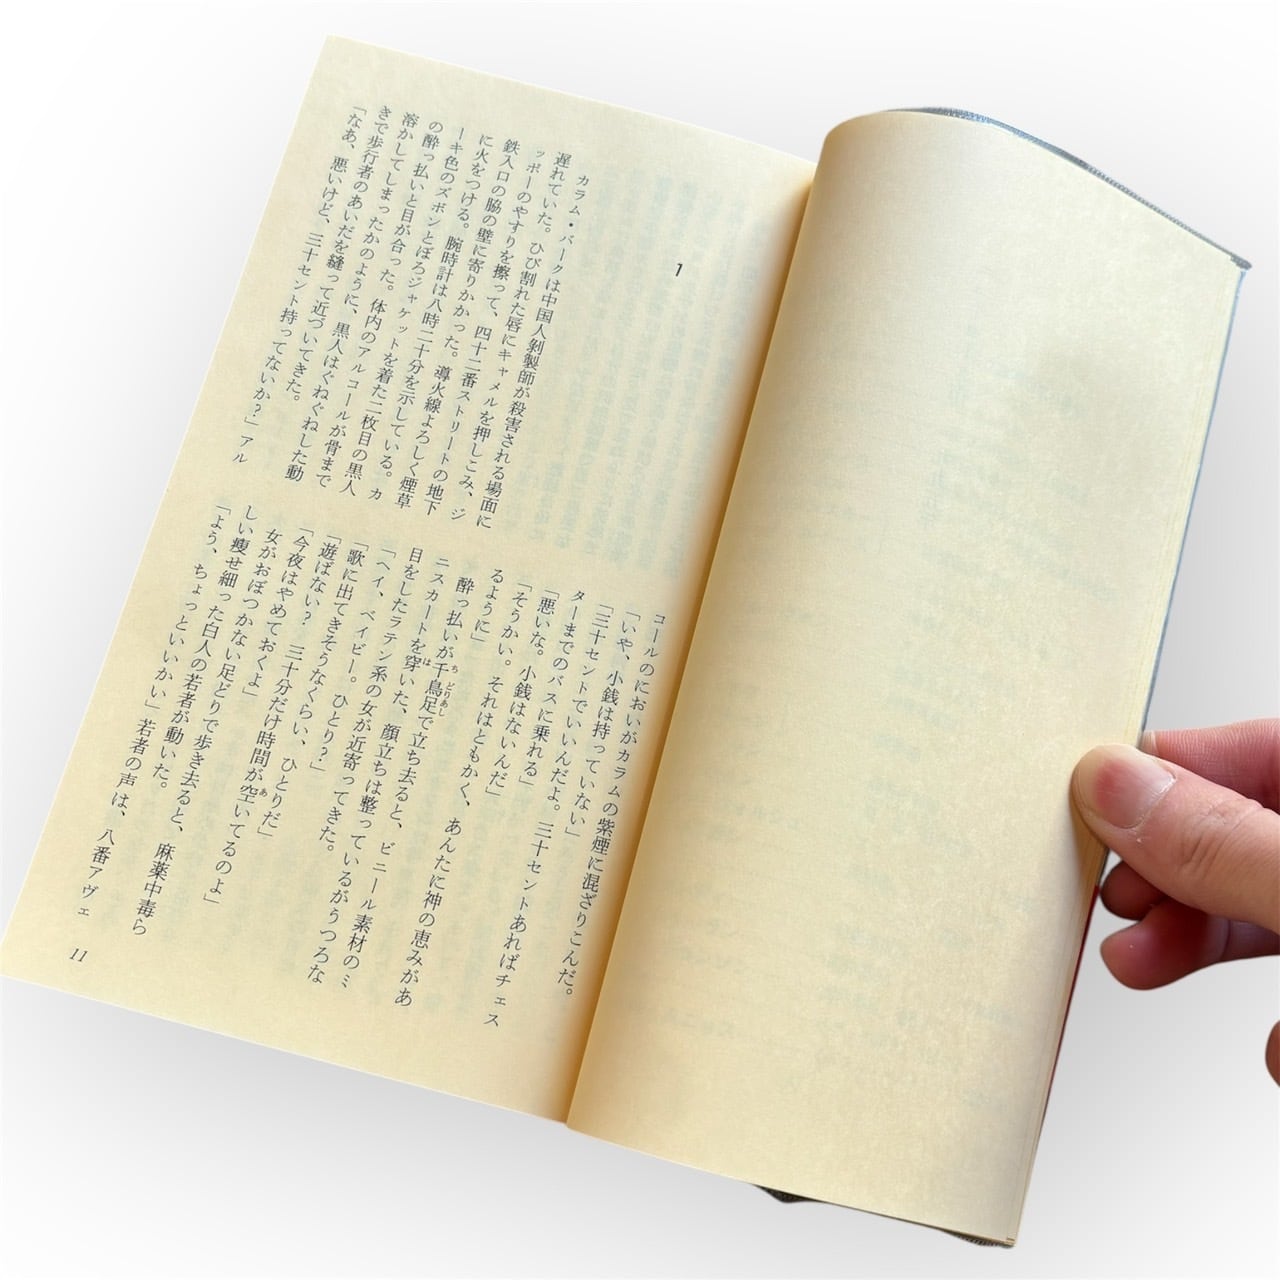 1
カラム・バークは中国人剝製師が殺害される場面に
遅れていた。ひび割れた唇にキャメルを押しこみ、ジ
ッポーのやすりを擦って、四十二番ストリートの地下
鉄入口の脇の壁に寄りかかった。導火線よろしく煙草
に火をつける。腕時計は八時二十分を示している。カ
ーキ色のズボンとぼろジャケットを着た二枚目の黒人
の酔っ払いと目が合った。体内のアルコールが骨まで
溶かしてしまったかのように、黒人はぐねぐねした動
きで歩行者のあいだを縫って近づいてきた。
「なあ、悪いけど、三十セント持ってないか?」アル
コールのにおいがカラムの紫煙に混ざりこんだ。
「いや、小銭は持っていない」
「三十セントでいいんだよ。三十セントあればチェス
ターまでのバスに乗れる」
「悪いな。小銭はないんだ」
「そうかい。それはともかく、あんたに神の恵みがあ
るように」
酔っ払いが千鳥足で立ち去ると、ビニール素材のミ
ニスカートを穿いた、顔立ちは整っているがうつろな
目をしたラテン系の女が近寄ってきた。
「ヘイ、ベイビー。ひとり?」
「歌に出てきそうなくらい、ひとりだ」
「遊ばない? 三十分だけ時間が空いてるのよ」
「今夜はやめておくよ」
女がおぼつかない足どりで歩き去ると、麻薬中毒ら
しい痩せ細った白人の若者が動いた。
「よう、ちょっといいかい」若者の声は、八番アヴェ
11